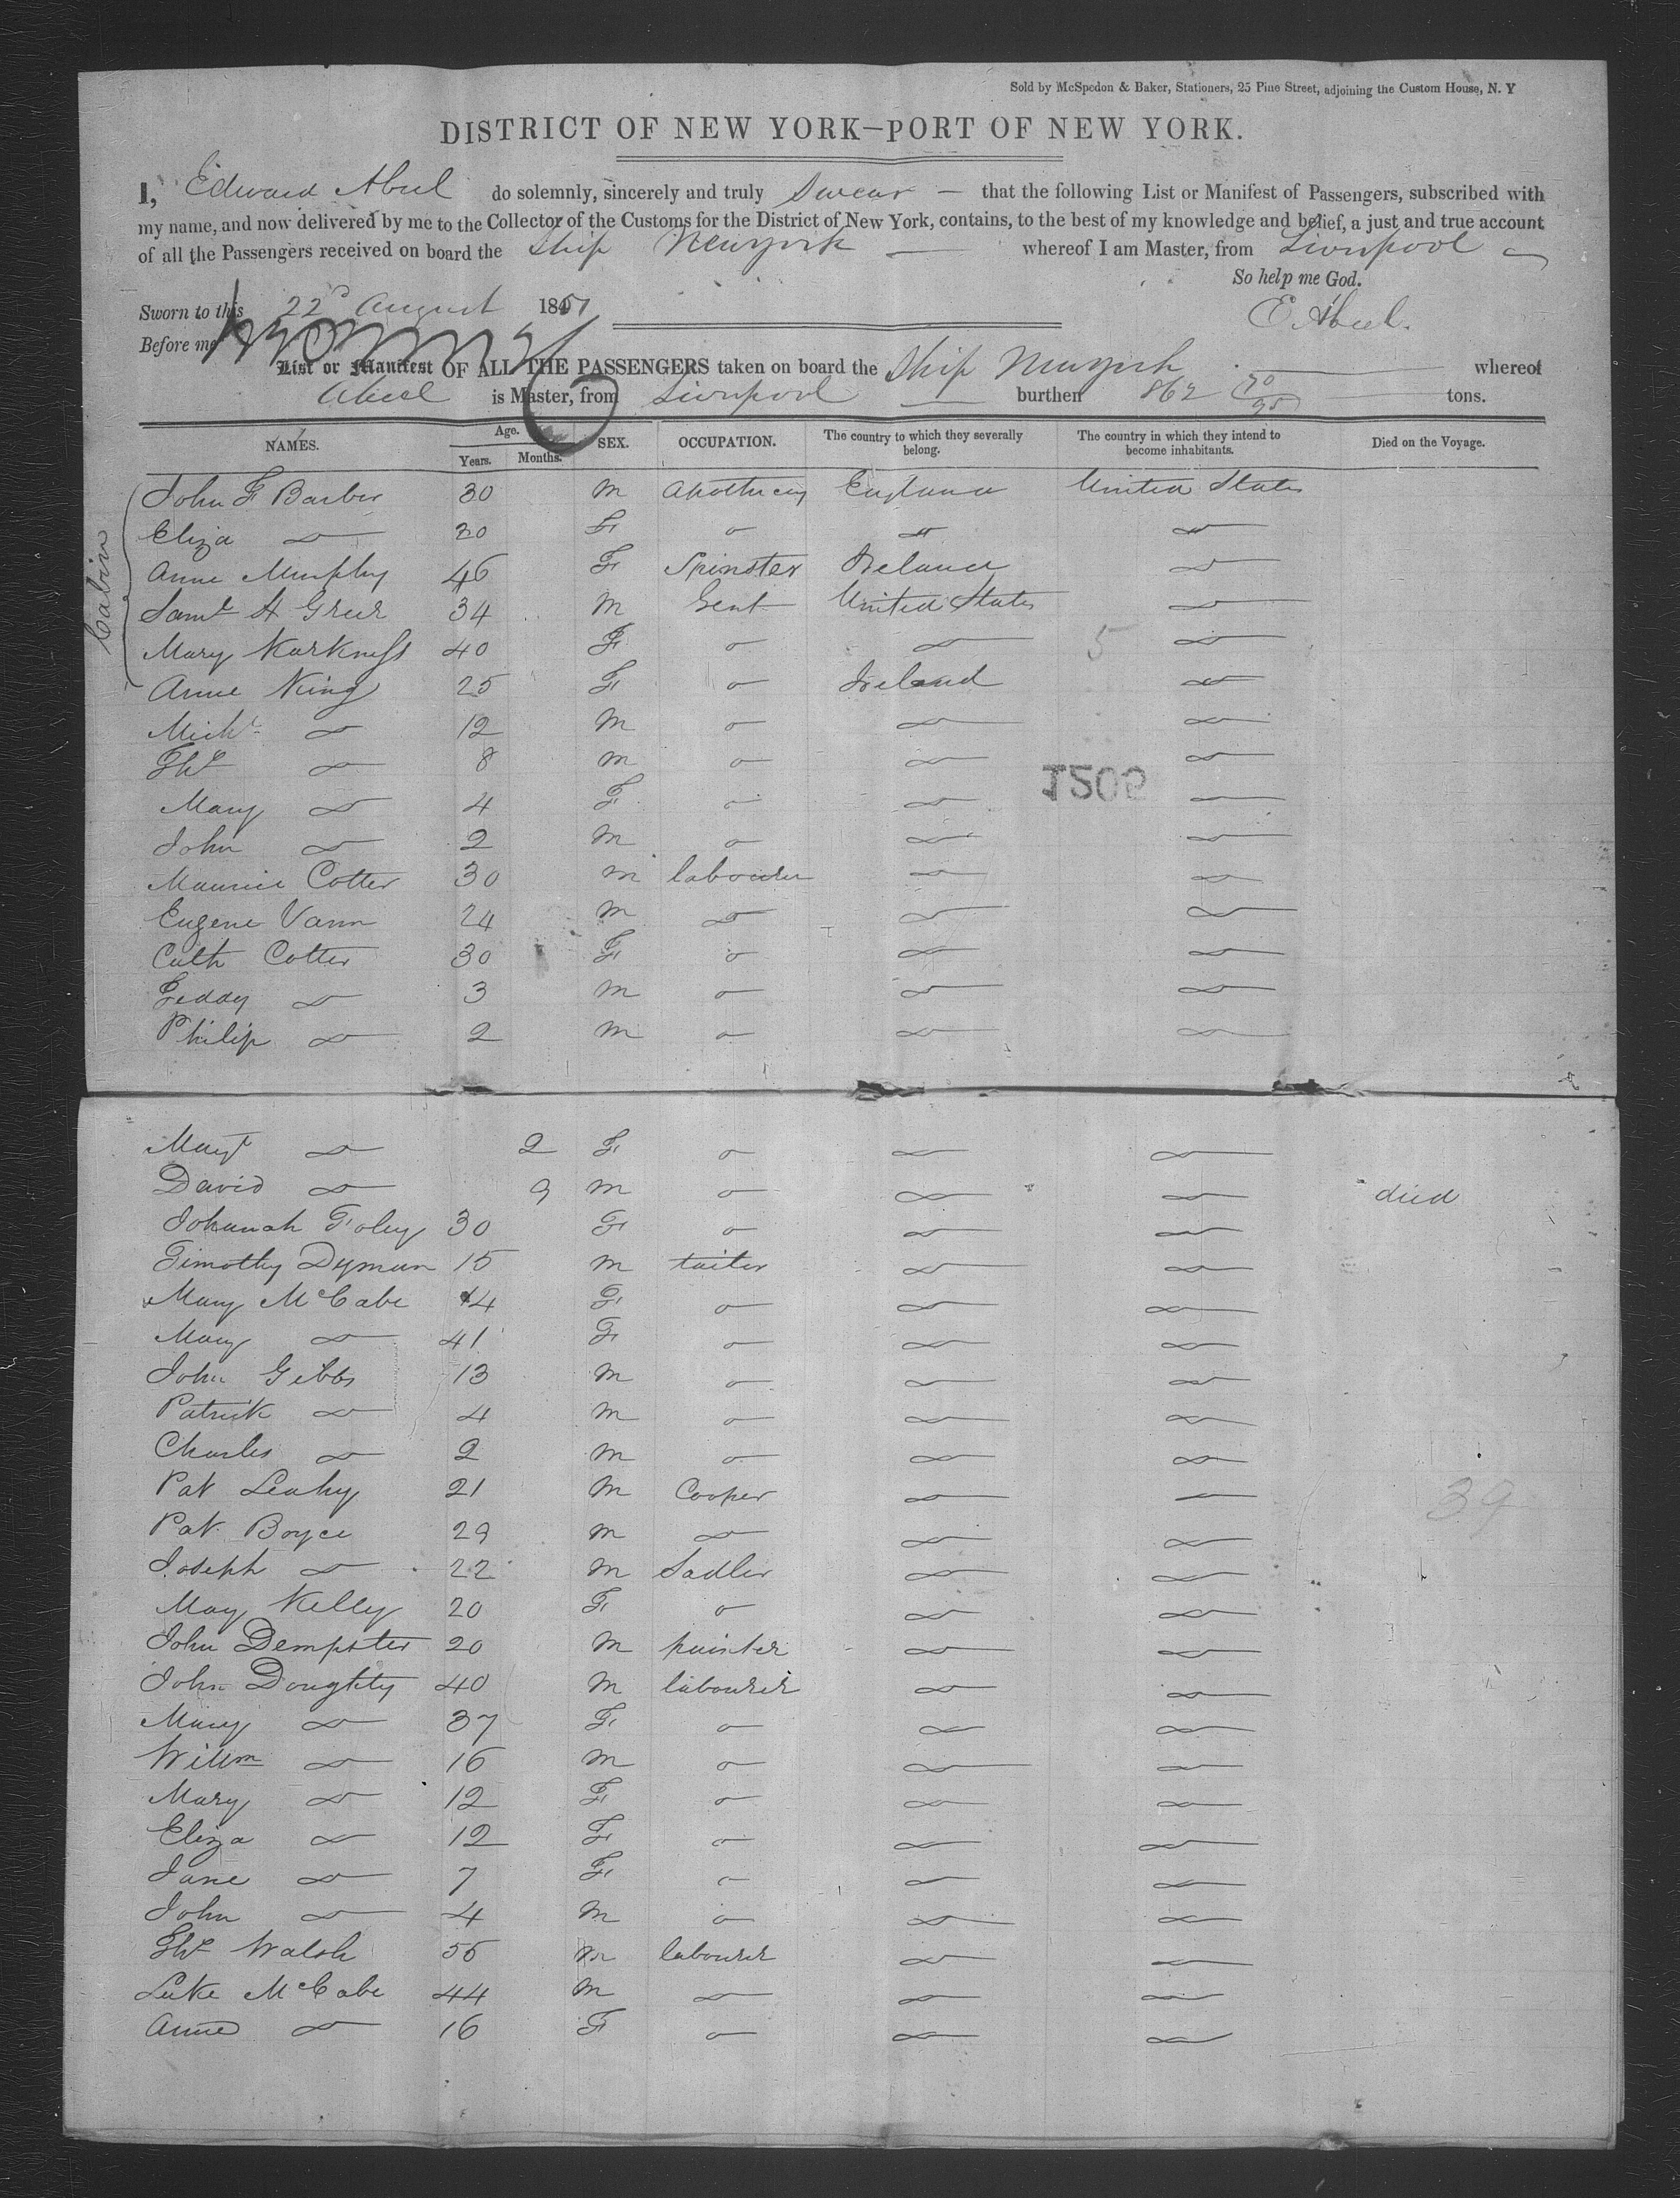 Sold by McSpedon & Baker, Stationers, 25 Pine Street, adjoining the Custom House, N. Y
DISTRICT OF NEW YORK—PORT OF NEW YORK.
I, Edward Abeel do solemnly, sincerely and truly Swear — that the following List or Manifest of Passengers, subscribed with
my name, and now delivered by me to the Collector of the Customs for the District of New York, contains, to the best of my knowledge and belief, a just and true account
of all the Passengers received on board the Ship Newyork — whereof I am Master, from Liverpool
So help me God.
Sworn to this 22d August 1851
E. Abeel.
Before me
List or Manifest OF ALL THE PASSENGERS taken on board the Ship Newyork whereof
Abeel is Master, from Liverpool — burthen 862 20/95 tons.
NAMES. Age. Years. Months. SEX. OCCUPATION. The country to which they severally belong. The country in which they intend to become inhabitants. Died on the Voyage.
Cabin
John F Barber 30 M Apothecary England United States
Eliza do 20 F do do
Anne Murphy 46 F Spinster Ireland do
Saml A Greer 34 M Gent United States do
Mary Harkness 40 F do 5 do
Anne King 25 F Ireland do
Michl do 12 M do do
Ths do 8 M do do
1502
Mary do 4 F do do
John do 2 M do do
Maurice Cotter 30 M labourer do do
Eugene Vann 24 M do do do
Cath Cotter 30 F do do
Teddy do 3 M do do
Philip do 2 M do do
Mayt do 2 F do do
David do 9 M do do died
Johanah Foley 30 F do do
Timothy Dyman 15 M tailor do do
Mary McCabe 14 F do do
Mary do 41 F do do
John Gibbs 13 M do do
Patrick do 4 M do do
Charles do 2 M do do
Pat Leahy 21 M Cooper do do
39
Pat Boyce 29 M do do do
Joseph do 22 M Sadler do do
May Kelly 20 F do do
John Dempster 20 M painter do do
John Doughty 40 M labourer do do
Mary do 37 F do do
Willm do 16 M do do
Mary do 12 F do do
Eliza do 12 F do do
Jane do 7 F do do
John do 4 M do do
Ths Walsh 56 M labourer do do
Luke McCabe 44 M do do do
Anne do 16 F do do